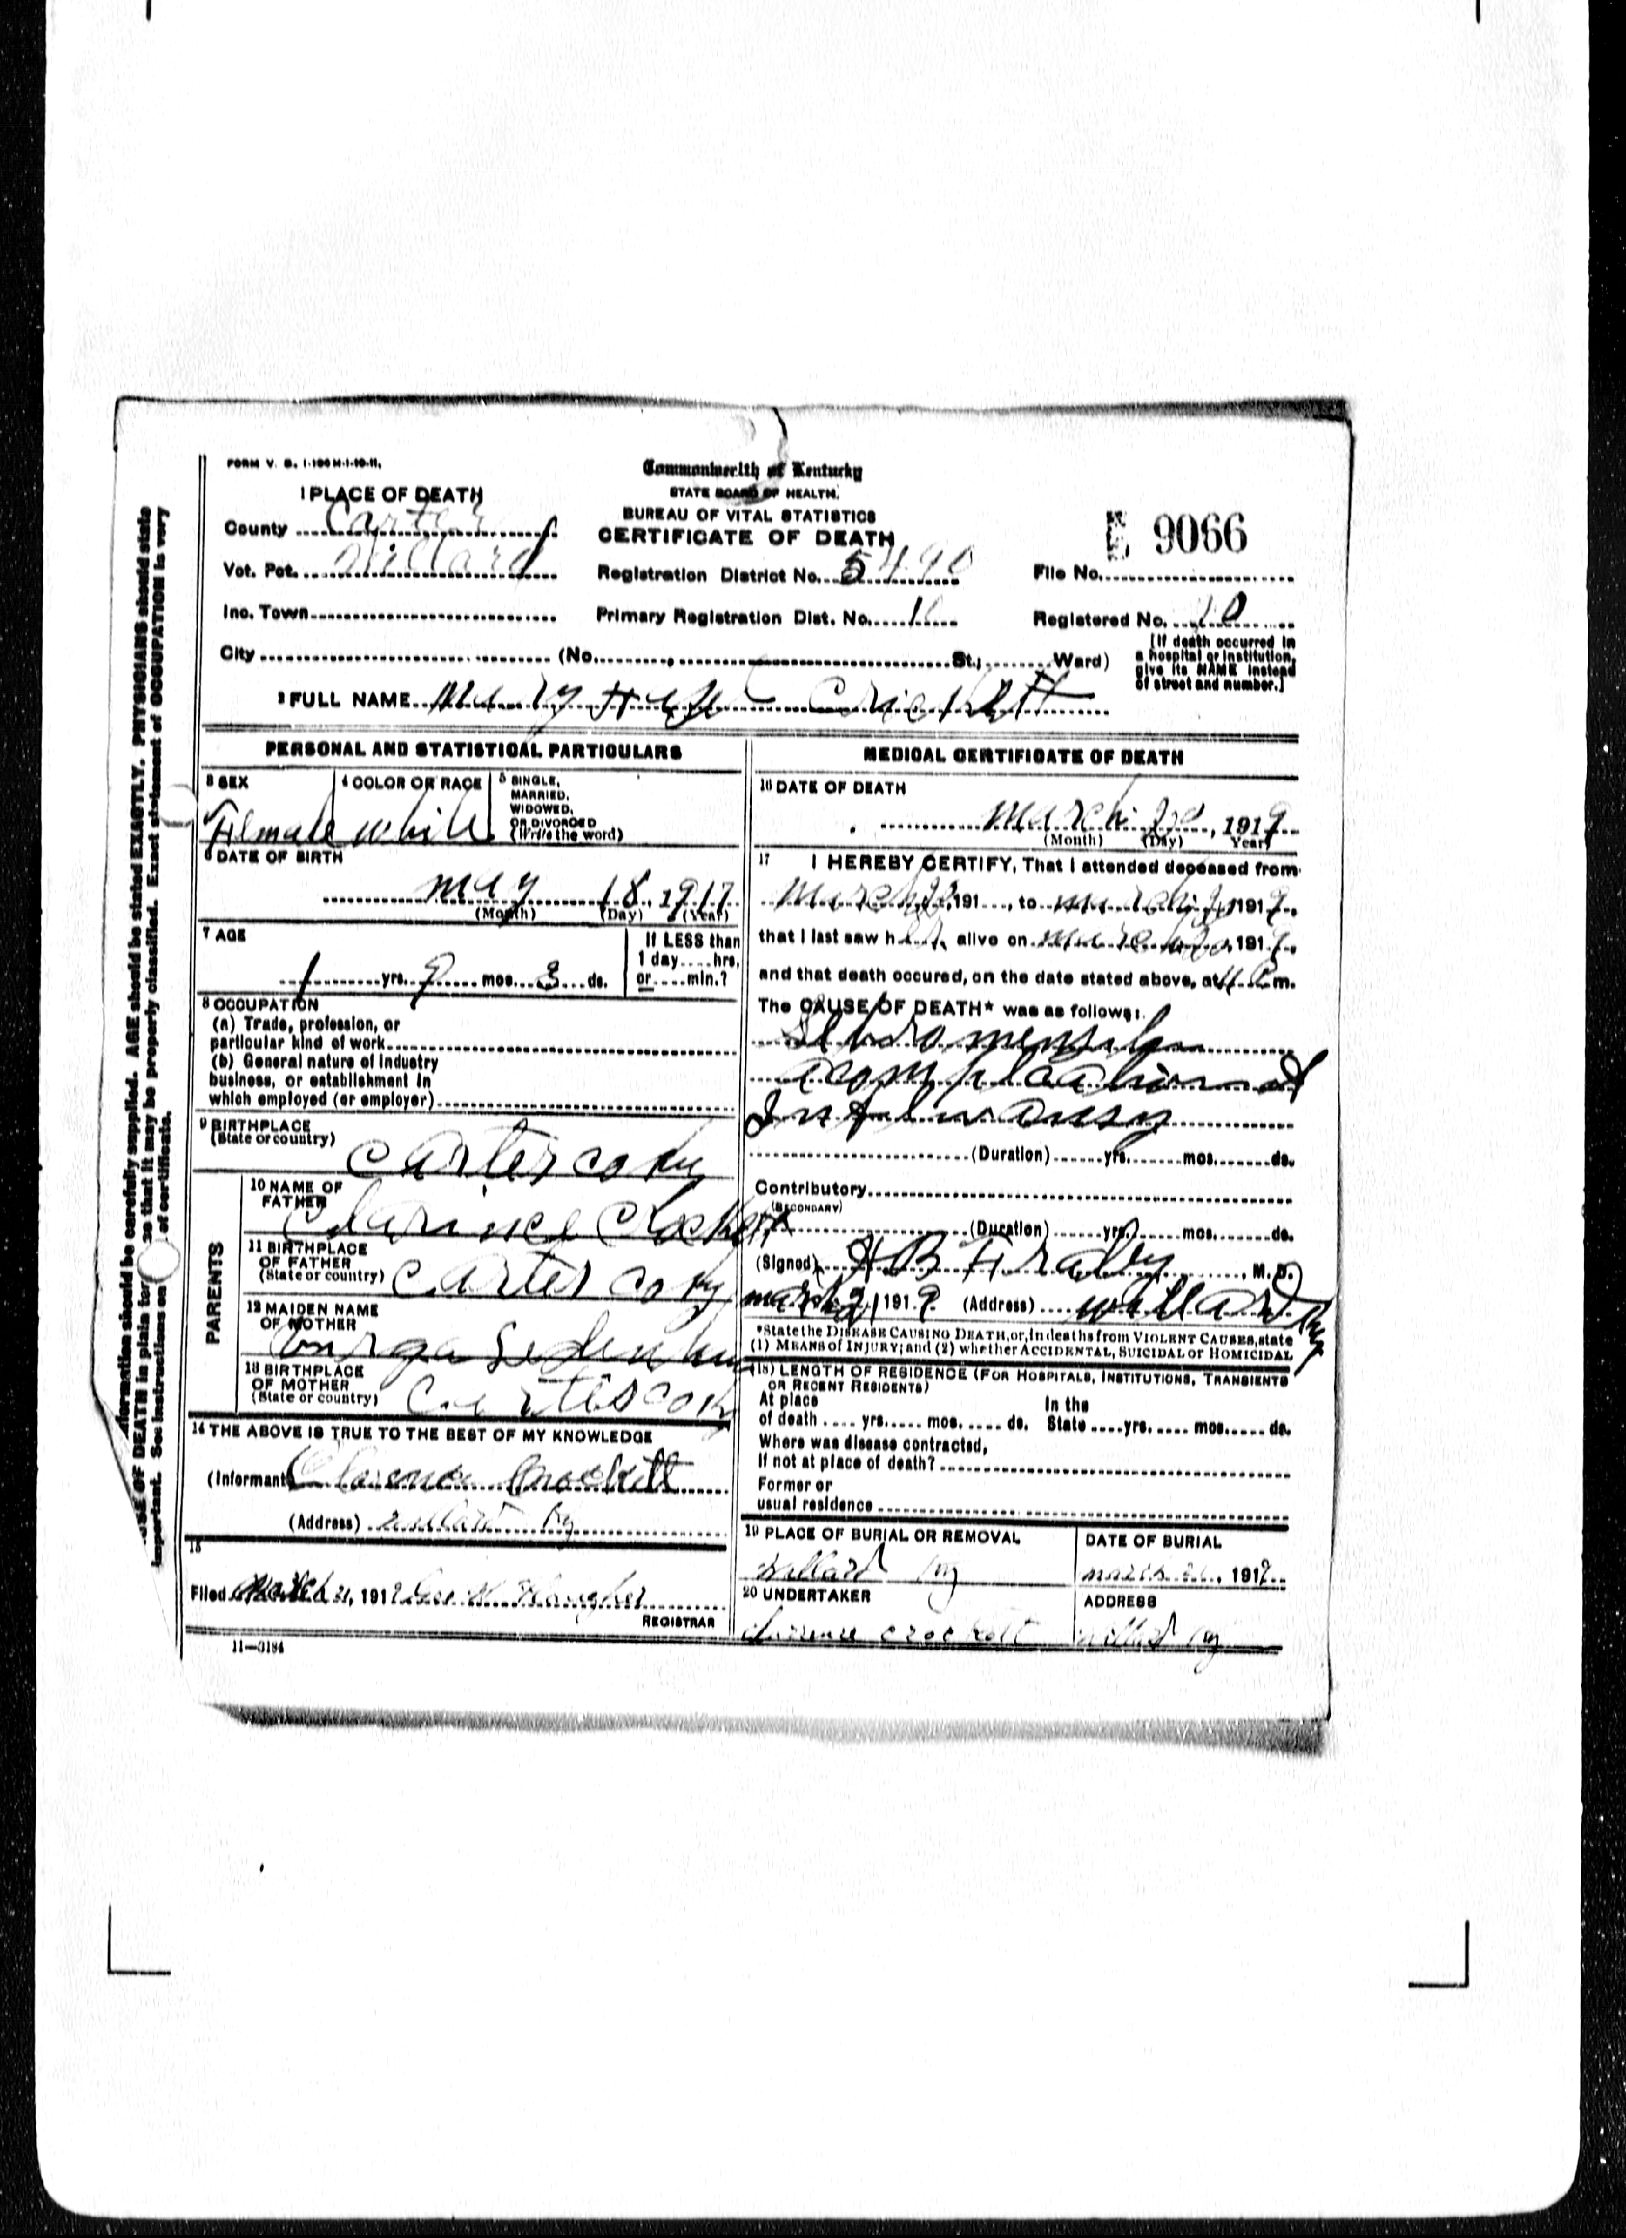 FORM V. S. 1-100M-1-10-11.
1 PLACE OF DEATH
County Carter
Vot. Pct. Willard
Inc. Town
City (No. St.; Ward)
Commonwealth of Kentucky
STATE BOARD OF HEALTH.
BUREAU OF VITAL STATISTICS
CERTIFICATE OF DEATH
Registration District No. 5490
Primary Registration Dist. No.
9066
File No.
Registered No. 10
[If death occurred in
a hospital or institution,
give its NAME instead
of street and number.]
2 FULL NAME Mary
PERSONAL AND STATISTICAL PARTICULARS
3 SEX
Female
4 COLOR OR RACE
White
5 SINGLE,
MARRIED,
WIDOWED,
OR DIVORCED
(Write the word)
6 DATE OF BIRTH
may 18, 1917
(Month) (Day) (Year)
7 AGE
1 yrs. 9 mos. 3 ds.
If LESS than
1 day hrs.
or min.?
8 OCCUPATION
(a) Trade, profession, or
particular kind of work
(b) General nature of industry
business, or establishment in
which employed (or employer)
9 BIRTHPLACE
(State or country)
Carter co ky
PARENTS
10 NAME OF
FATHER
11 BIRTHPLACE
OF FATHER
(State or country)
Carter co ky
12 MAIDEN NAME
OF MOTHER
13 BIRTHPLACE
OF MOTHER
(State or country)
Carter co ky
14 THE ABOVE IS TRUE TO THE BEST OF MY KNOWLEDGE
(Informant) Clarence Crockett
(Address) Willard Ky
15
Filed March 21, 1919 Geo
REGISTRAR
11—3184
MEDICAL CERTIFICATE OF DEATH
16 DATE OF DEATH
march 20, 1919
(Month) (Day) Year)
17 I HEREBY CERTIFY, That I attended deceased from
March 191 , to march 1919,
that I last saw her alive on march 20, 1919,
and that death occured, on the date stated above, at m.
The CAUSE OF DEATH* was as follows:
acomplication of
(Duration) yrs. mos. ds.
Contributory
(SECONDARY)
(Duration) yrs. mos. ds.
(Signed) H B Fraley, M. D.
march 21 1919 (Address) Willard Ky
*State the DISEASE CAUSING DEATH, or, in deaths from VIOLENT CAUSES, state
(1) MEANS of INJURY; and (2) whether ACCIDENTAL, SUICIDAL or HOMICIDAL
(18) LENGTH OF RESIDENCE (FOR HOSPITALS, INSTITUTIONS, TRANSIENTS
OR RECENT RESIDENTS)
At place In the
of death yrs. mos. ds. State yrs. mos. ds.
Where was disease contracted,
If not at place of death?
Former or
usual residence
19 PLACE OF BURIAL OR REMOVAL
Willard Ky
DATE OF BURIAL
march 21, 1919
20 UNDERTAKER
Clarence Crockett
ADDRESS
Willard Ky
formation should be carefully supplied. AGE should be stated EXACTLY. PHYSICIANS should state
OF DEATH in plain ter so that it may be properly classified. Exact statement of OCCUPATION is very
important. See instructions on of certificate.